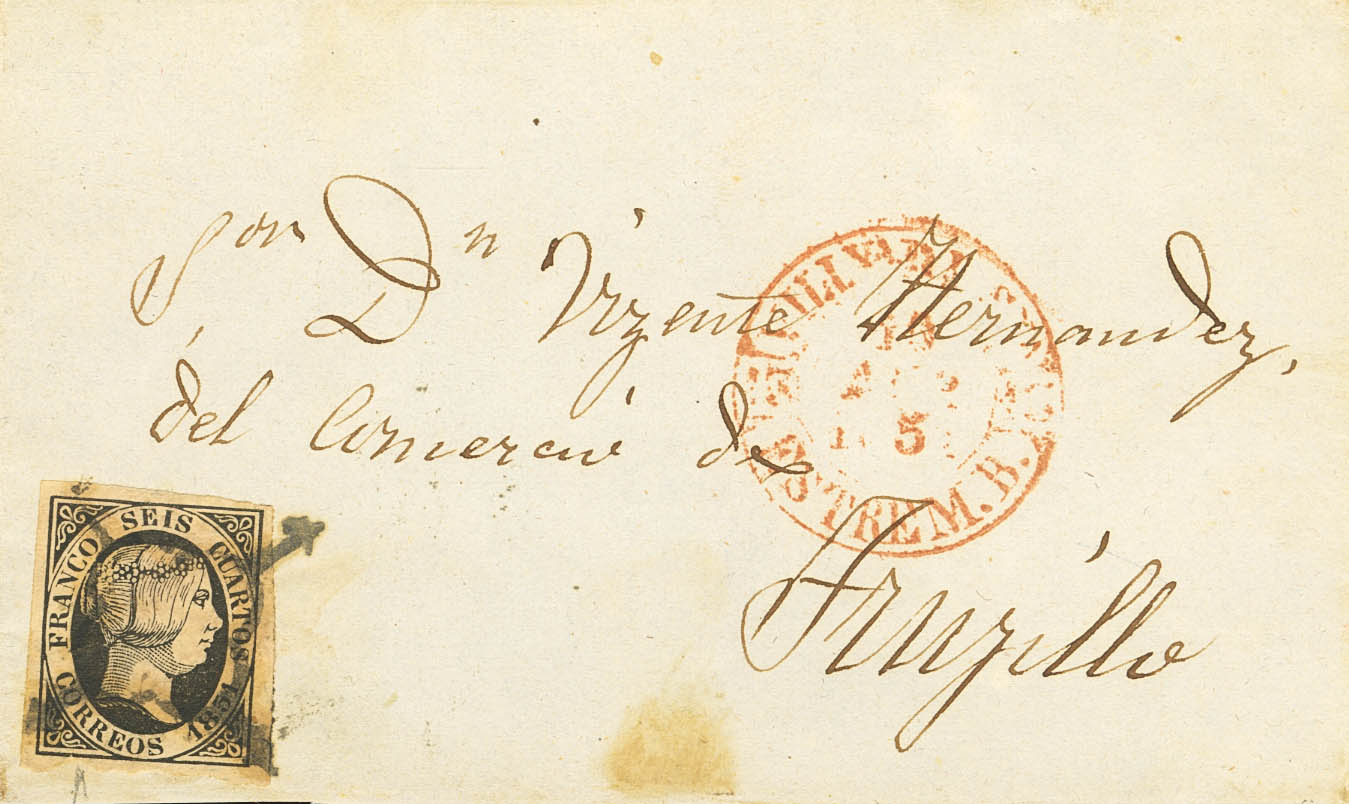 Sor Dn Vizente Hernandez,
del Comercio de
Trujillo
FRANCO SEIS CUARTOS
CORREOS 1851
5
ESTREM. B.